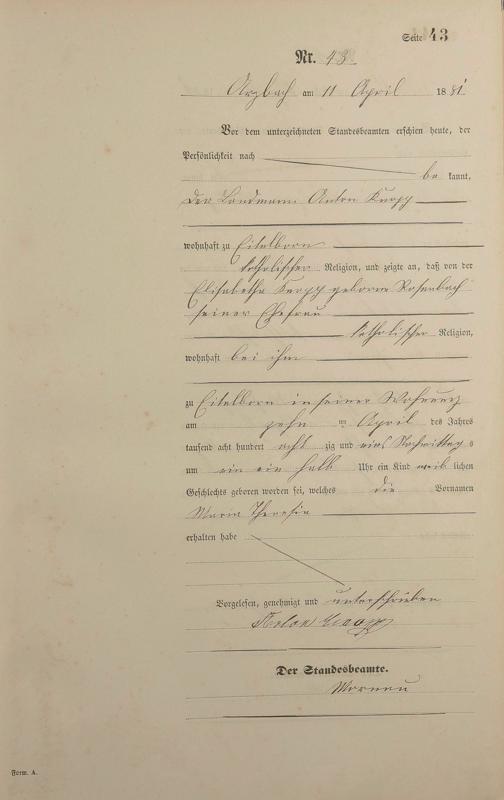 Seite 43
Nr. 43
Arzbach am 11 April 1881
Vor dem unterzeichneten Standesbeamten erschien heute, der
Persönlichkeit nach
be kannt,
der Landmann Anton Knopp
wohnhaft zu Eitelborn
katholischer Religion, und zeigte an, daß von der
Elisabetha Knopp geborne Rosenbach
seiner Ehefrau
katholischer Religion,
wohnhaft bei ihm
zu Eitelborn in seiner Wohnung
am zehn ten April des Jahres
tausend acht hundert acht zig und eins Nachmittags
um ein ein halb Uhr ein Kind weib lichen
Geschlechts geboren worden sei, welches die Vornamen
Maria Theresia
erhalten habe
Vorgelesen, genehmigt und unterschrieben
Anton Knopp
Der Standesbeamte.
Form. A.